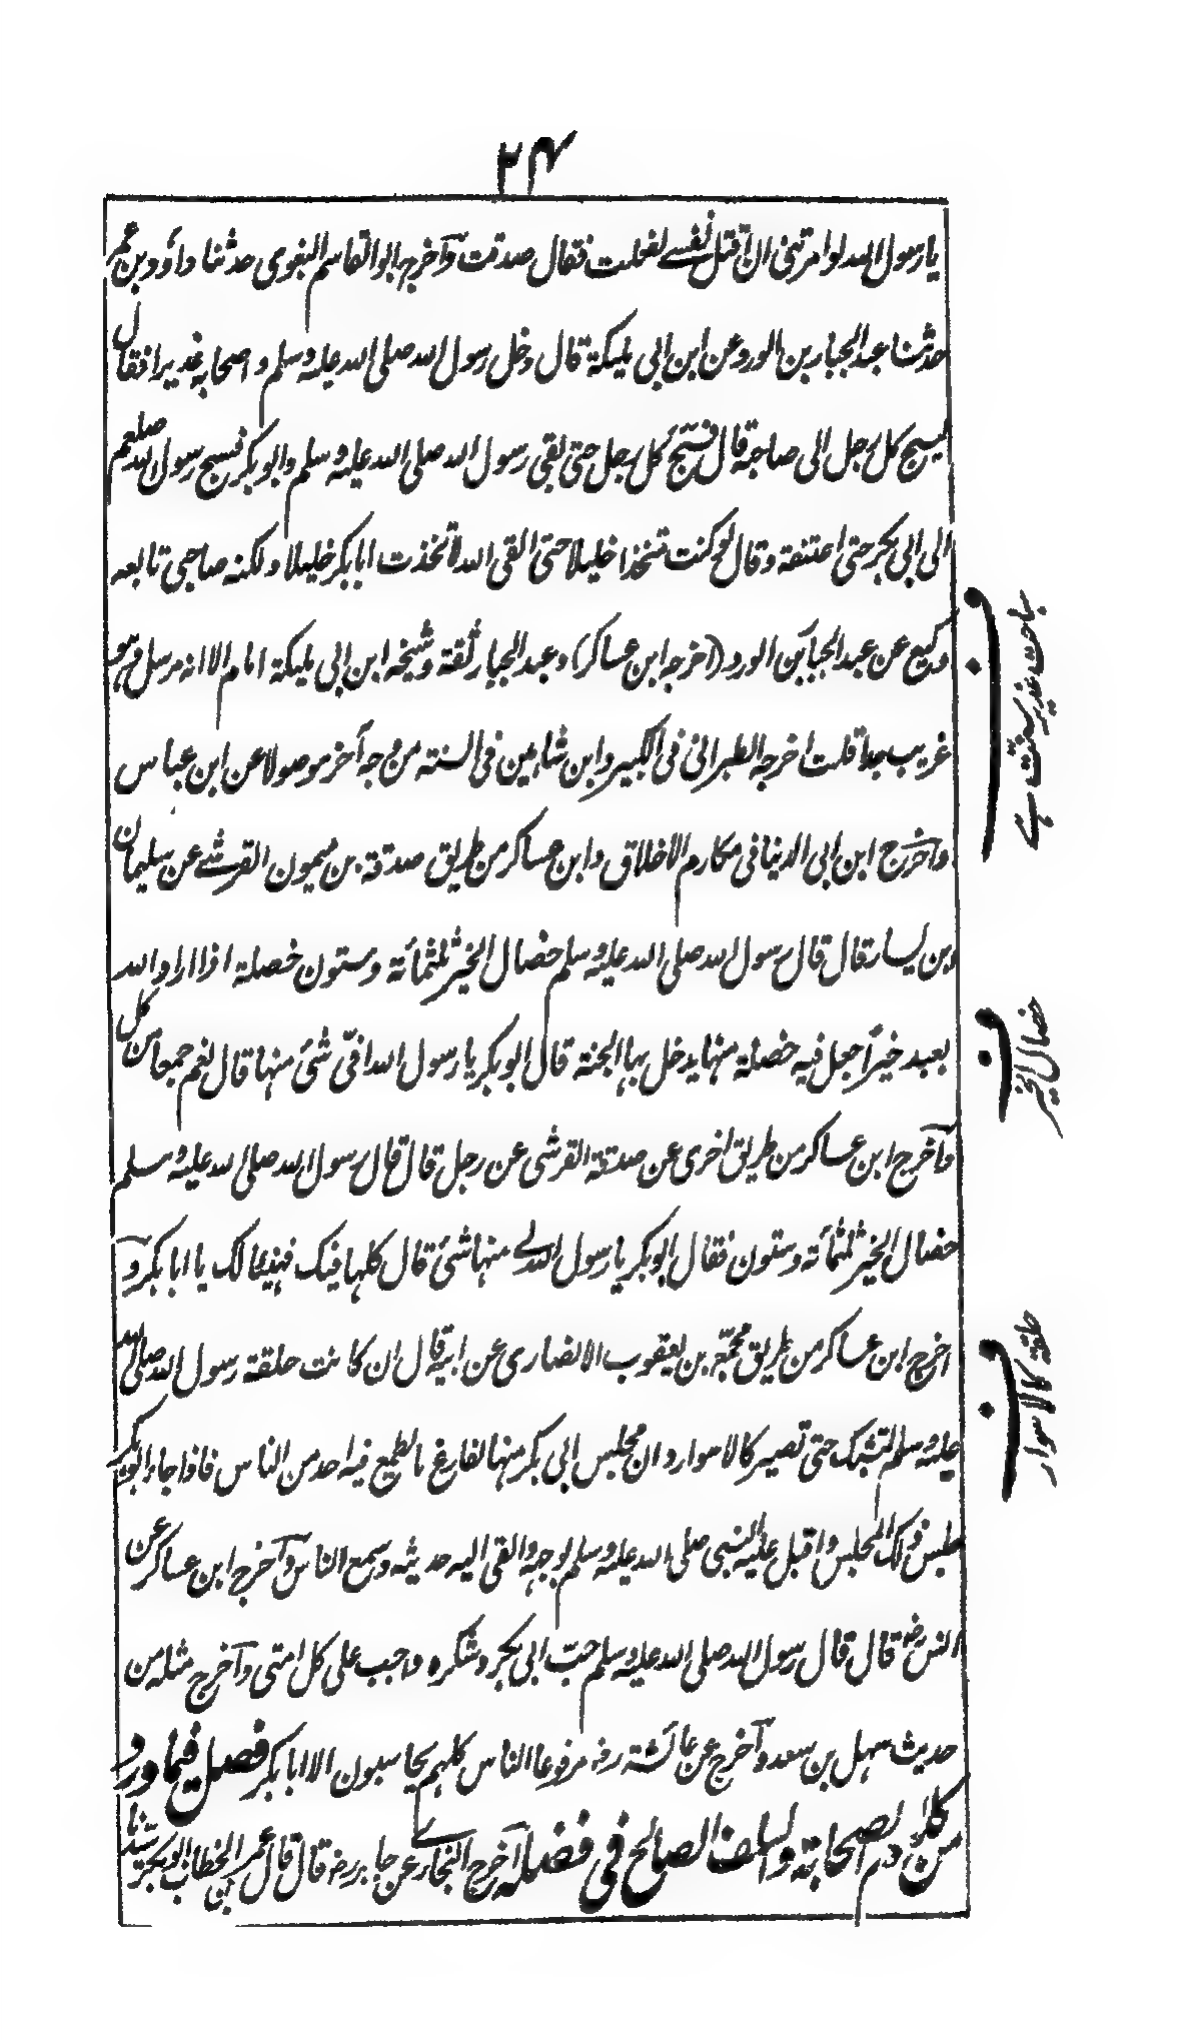 ۲۴
يا رسول الله لو امرتنى ان اقتل نفسے لفعلت فقال صدقت وآخرج ابو القاسم البغوى حدثنا داؤد بن عمر
حدثنا عبد الجبار بن الورد عن ابن ابى مليكة قال دخل رسول الله صلى الله عليه وسلم واصحابه غديرا فقال
ليسبح كل رجل الى صاحبه قال فسبح كل رجل حتى لقى رسول الله صلى الله عليه وسلم وابو بكر فسبح رسول الله صلعم
الى ابى بكر حتى اعتنقه وقال لو كنت متخذا خليلا حتى القى الله لاتخذت ابا بكر خليلا ولكنه صاحبى تابعه
وكيع عن عبد الجبار بن الورد (اخرجه ابن عساكر) وعبد الجبار ثقة وشيخه ابن ابى مليكة امام الا انه مرسل وهو
غريب جدا قلت اخرجه الطبرانى فى الكبير وابن شاهين فى السنه من وجه آخر موصولا عن ابن عباس
وآخرج ابن ابى الدنيا فى مكارم الاخلاق وابن عساكر من طريق صدقة بن ميمون القرشے عن سليمان
بن يسار قال قال رسول الله صلى الله عليه وسلم خصال الخير ثلثمائة وستون خصلة اذا اراد الله
بعبد خيرا جعل فيه خصلة منها يدخل بها الجنة قال ابو بكر يا رسول الله افىّ شئ منها قال نعم جمعا من كل
وآخرج ابن عساكر من طريق اخرى عن صدقة القرشى عن رجل قال قال رسول الله صلى الله عليه وسلم
خصال الخير ثلثمائة وستون فقال ابو بكر يا رسول الله لے منها شئ قال كلها فيك فهنيئا لك يا ابا بكر وآ
خرج ابن عساكر من طريق مجمّع بن يعقوب الانصارى عن ابيه قال ان كانت حلقة رسول الله صلى الله
عليه وسلم لتشتبك حتى تصير كالاسوار وان مجلس ابى بكر منها لفارغ ما يطمع فيه احد من الناس فاذا جاء ابو بكر
جلس ذلك المجلس واقبل عليه النبى صلى الله عليه وسلم بوجهه والقى اليه حديثه وسمع الناس وآخرج ابن عساكر عن
انس رض قال قال رسول الله صلى الله عليه وسلم حبّ ابى بكر وشكره واجب على كل امتى وآخرج مثله من
حديث سهل بن سعد وآخرج عن عائشة رض مرفوعا الناس كلهم يحاسبون الا ابا بكر فصل فيما ورد
من كلام الصحابة والسلف الصالح فى فضله آخرج البخارے عن جابر رض قال قال عمر بن الخطاب ابو بكر سيدنا
خصال الخير
حلقه كالاسوار